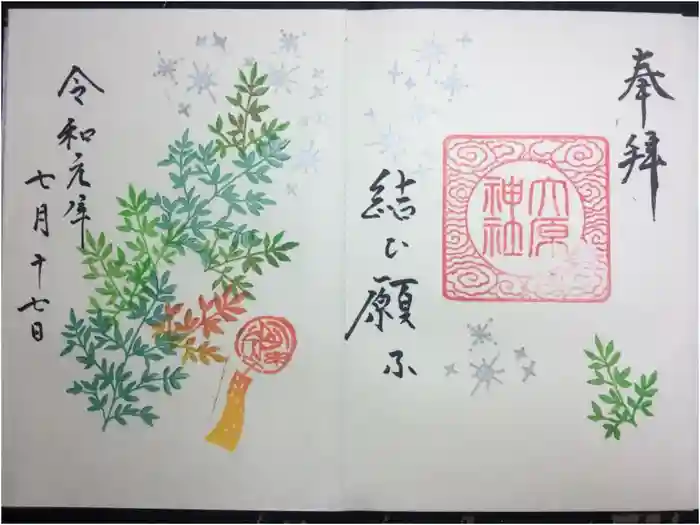 奉拝
六原
神社
結び願ふ
令和元年
七月十七日